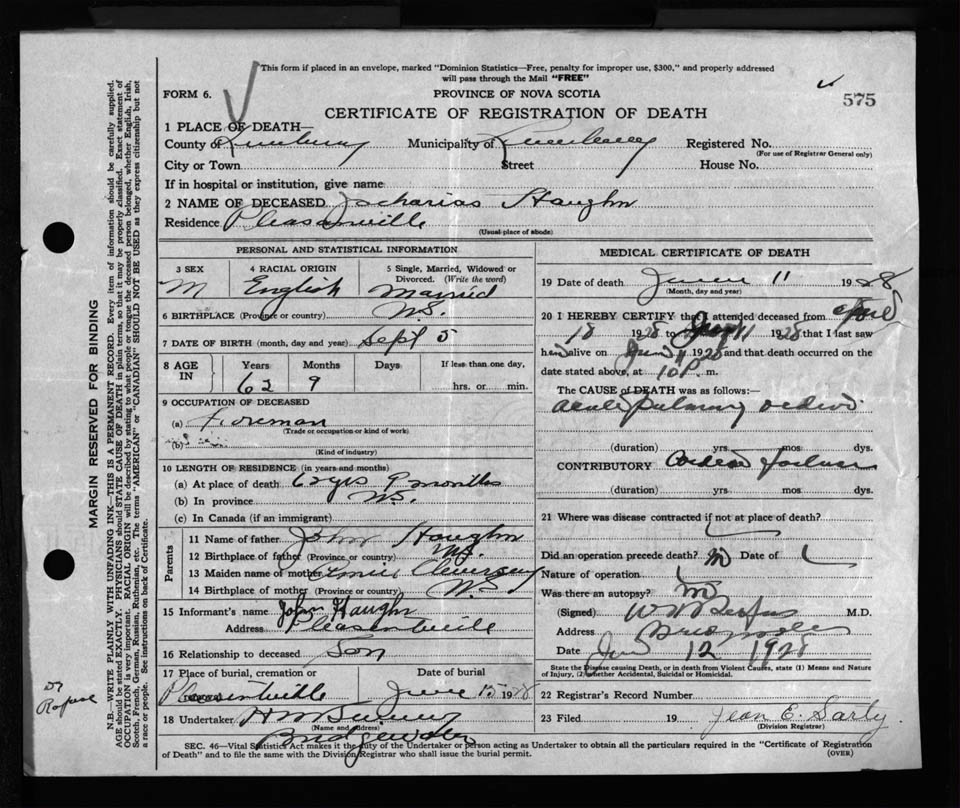 This form if placed in an envelope, marked "Dominion Statistics—Free, penalty for improper use, $300," and properly addressed
will pass through the Mail "FREE"
FORM 6.
PROVINCE OF NOVA SCOTIA
575
CERTIFICATE OF REGISTRATION OF DEATH
1 PLACE OF DEATH—
County of Lunenburg Municipality of Lunenburg Registered No.
(For use of Registrar General only)
City or Town Street House No.
If in hospital or institution, give name
2 NAME OF DECEASED Zacharias Haughn
Residence Pleasantville
(Usual place of abode)
PERSONAL AND STATISTICAL INFORMATION
3 SEX 4 RACIAL ORIGIN 5 Single, Married, Widowed or
Divorced. (Write the word)
M English Married
6 BIRTHPLACE (Province or country) N.S.
7 DATE OF BIRTH (month, day and year) Sept 5
8 AGE IN Years Months Days If less than one day,
62 9 hrs. or min.
9 OCCUPATION OF DECEASED
(a) Foreman
(Trade or occupation or kind of work)
(b)
(Kind of industry)
10 LENGTH OF RESIDENCE (in years and months)
(a) At place of death 62 yrs 9 months
(b) In province N.S.
(c) In Canada (if an immigrant)
Parents
11 Name of father John Haughn
12 Birthplace of father (Province or country) N.S.
13 Maiden name of mother
14 Birthplace of mother (Province or country) N.S.
15 Informant's name John Haughn
Address Pleasantville
16 Relationship to deceased Son
17 Place of burial, cremation or Date of burial
Pleasantville June 15 1928
18 Undertaker
(Name and address)
Bridgewater
MEDICAL CERTIFICATE OF DEATH
19 Date of death June 11 1928
(Month, day and year)
20 I HEREBY CERTIFY that I attended deceased from April
18 1928 to June 11 1928 that I last saw
h alive on June 11 1928 and that death occurred on the
date stated above, at 10 P. m.
The CAUSE of DEATH was as follows:—
acute pulmonary oedema
(duration) yrs. mos dys.
CONTRIBUTORY Cardiac failure
(duration) yrs. mos dys.
21 Where was disease contracted if not at place of death?
Did an operation precede death? No Date of
Nature of operation
Was there an autopsy? No
(Signed) M.D.
Address Bridgewater
Date Jun 12 1928
State the Disease causing Death, or in death from Violent Causes, state (1) Means and Nature
of Injury, (2) whether Accidental, Suicidal or Homicidal.
22 Registrar's Record Number
23 Filed 19 Jean E. Sarty
(Division Registrar)
SEC. 46—Vital Statistics Act makes it the duty of the Undertaker or person acting as Undertaker to obtain all the particulars required in the "Certificate of Registration
of Death" and to file the same with the Division Registrar who shall issue the burial permit. (OVER)
MARGIN RESERVED FOR BINDING
N.B.—WRITE PLAINLY WITH UNFADING INK—THIS IS A PERMANENT RECORD. Every item of information should be carefully supplied.
AGE should be stated EXACTLY. PHYSICIANS should STATE CAUSE OF DEATH in plain terms, so that it may be properly classified. Exact statement of
OCCUPATION is very important. RACIAL ORIGIN will be described by stating to what people or race the deceased person belonged, whether English, Irish,
Scotch, French, German, Russian, Ruthenian, etc. The terms "AMERICAN" or "CANADIAN" SHOULD NOT BE USED as they express citizenship but not
a race or people. See instructions on back of Certificate.